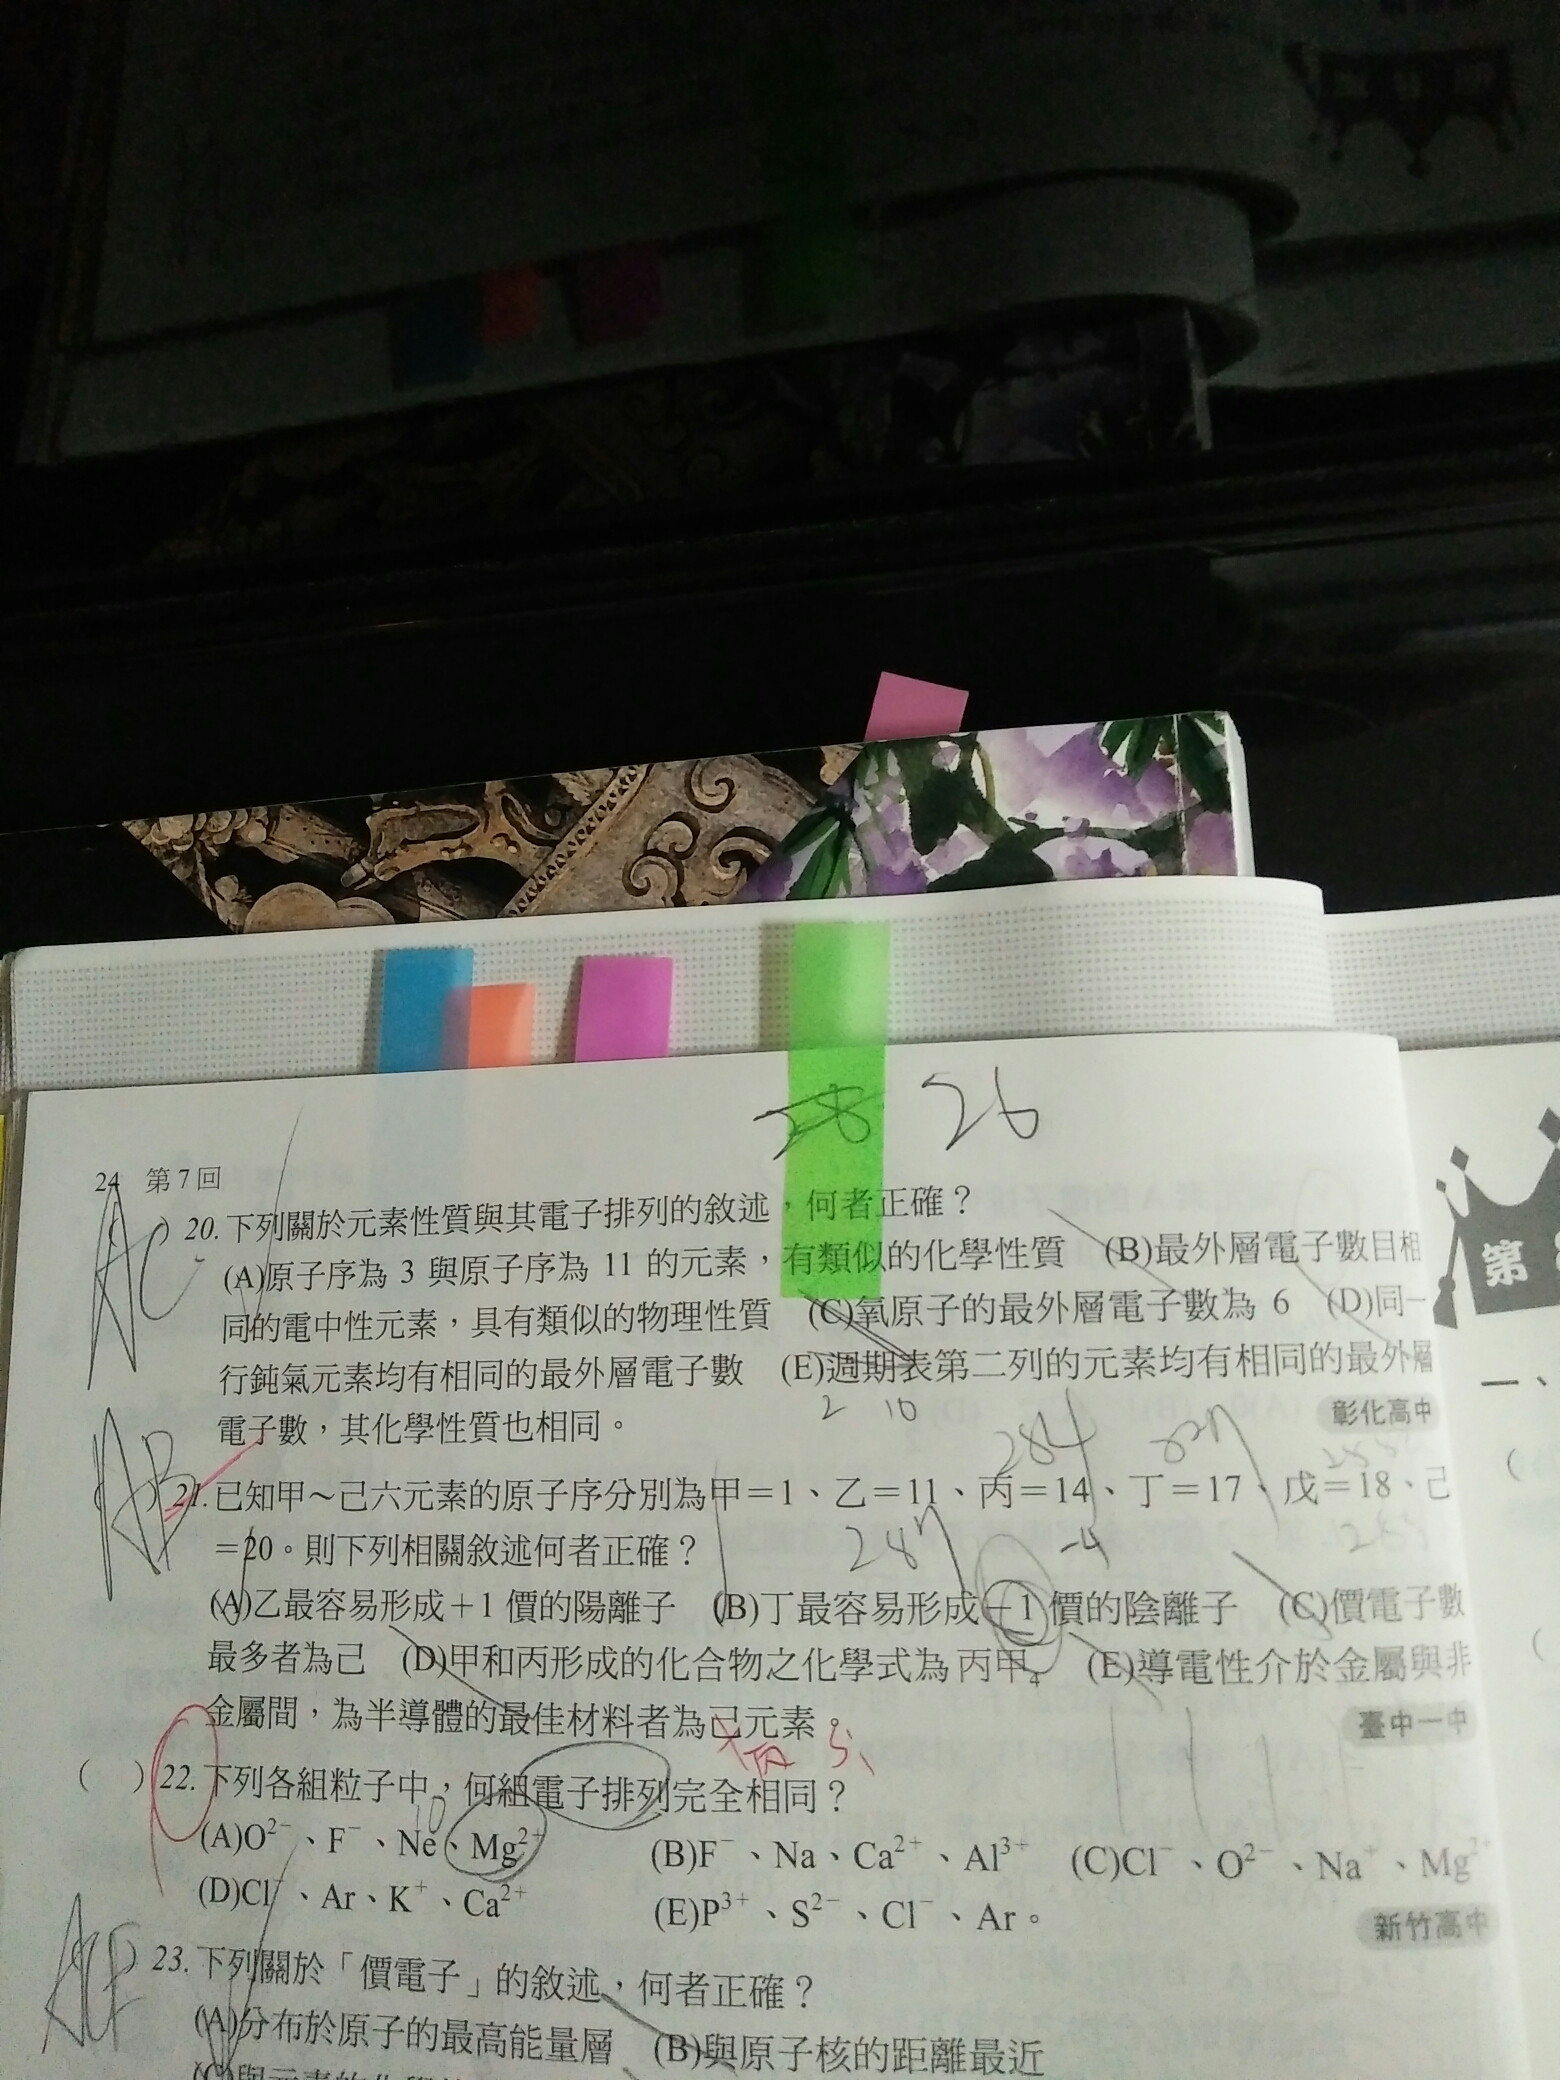 28 26
24 第7回
AC ( ) 20.下列關於元素性質與其電子排列的敘述,何者正確?
(A)原子序為 3 與原子序為 11 的元素,有類似的化學性質 (B)最外層電子數目相
同的電中性元素,具有類似的物理性質 (C)氧原子的最外層電子數為 6 (D)同一
行鈍氣元素均有相同的最外層電子數 (E)週期表第二列的元素均有相同的最外層
電子數,其化學性質也相同。
彰化高中
2 10
284
AB ( ) 21.已知甲～己六元素的原子序分別為甲=1、乙=11、丙=14、丁=17、戊=18、己
=20。則下列相關敘述何者正確?
-4
(A)乙最容易形成+1 價的陽離子 (B)丁最容易形成-1 價的陰離子 (C)價電子數
最多者為己 (D)甲和丙形成的化合物之化學式為丙甲₄ (E)導電性介於金屬與非
金屬間,為半導體的最佳材料者為己元素。
臺中一中
丙 Si
( ) 22.下列各組粒子中,何組電子排列完全相同?
10
(A)O²⁻、F⁻、Ne、Mg²⁺ (B)F⁻、Na、Ca²⁺、Al³⁺ (C)Cl⁻、O²⁻、Na⁺、Mg²⁺
(D)Cl⁻、Ar、K⁺、Ca²⁺ (E)P³⁺、S²⁻、Cl⁻、Ar。
新竹高中
( ) 23.下列關於「價電子」的敘述,何者正確?
(A)分布於原子的最高能量層 (B)與原子核的距離最近
第
一、